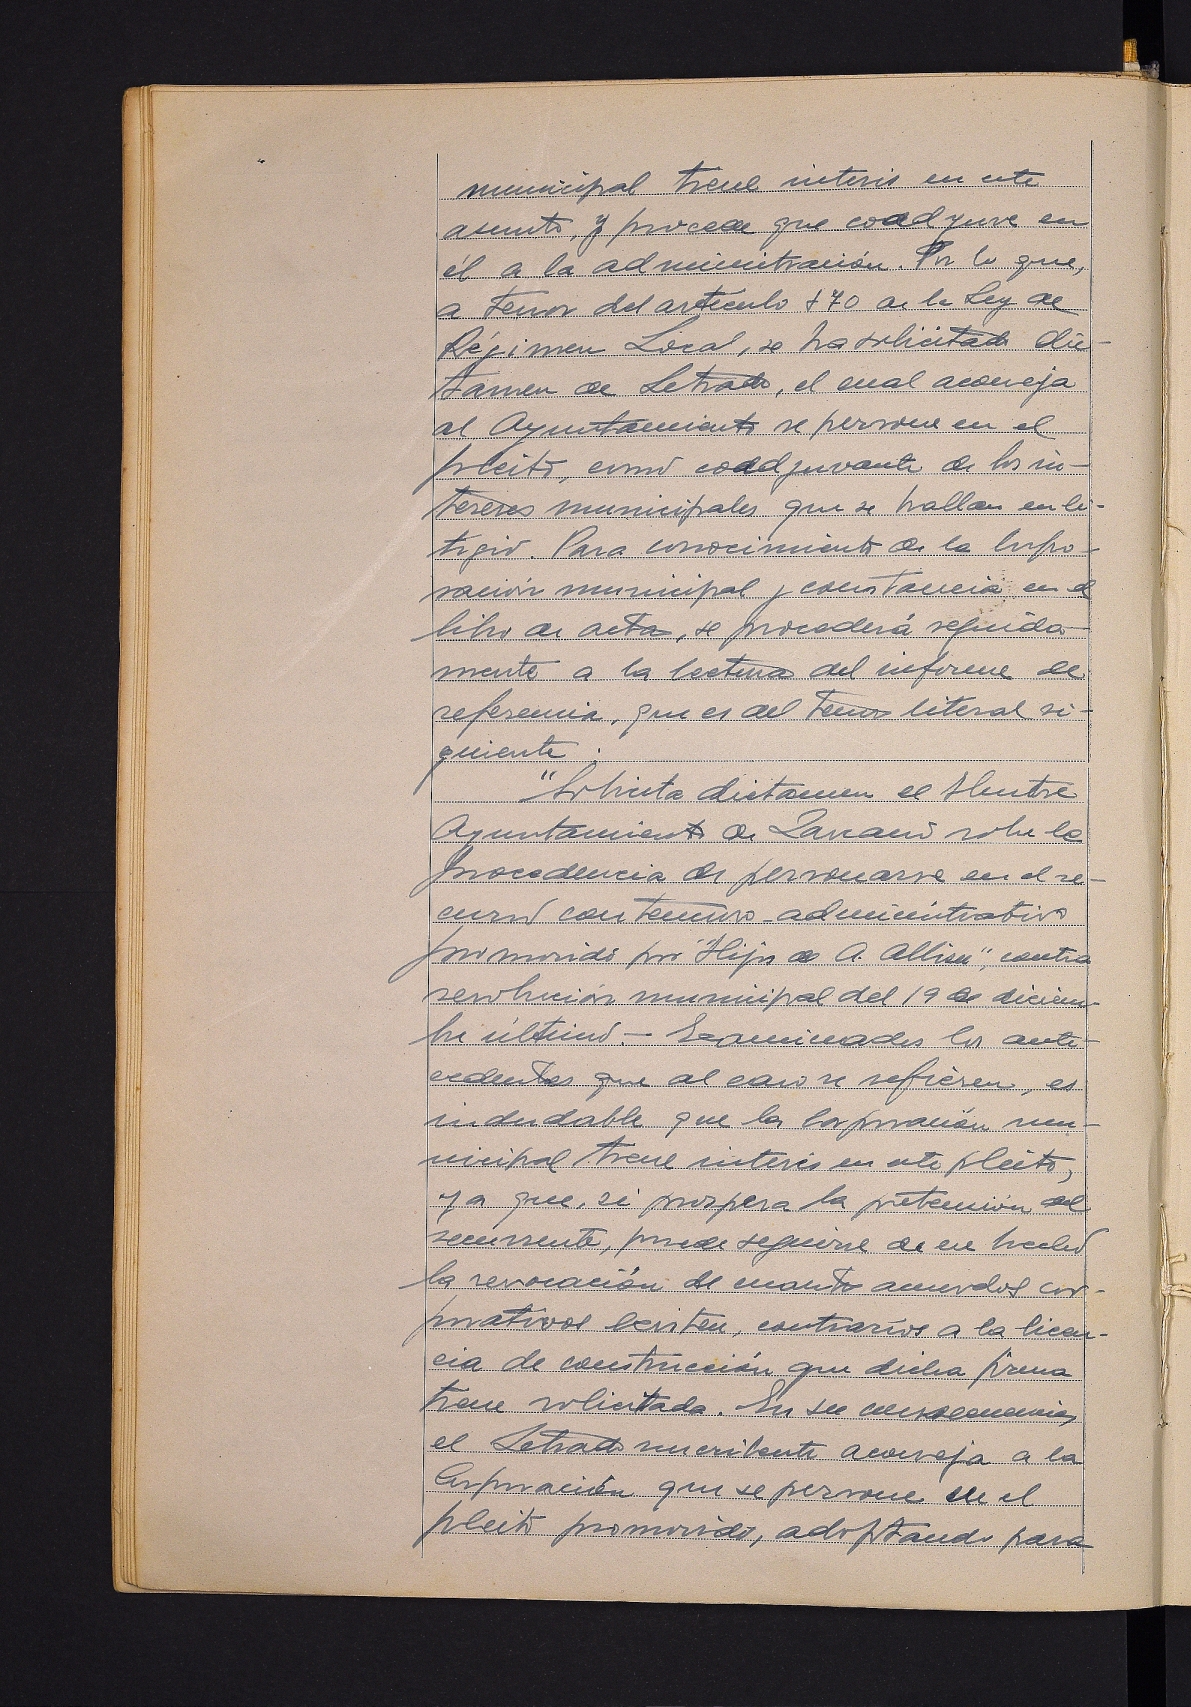 municipal tiene interés en este
asunto, y procede que coadyuve en
él a la administración. Por lo que,
a tenor del artículo 370 de la Ley de
Régimen Local, se ha solicitado dic-
tamen de Letrado, el cual aconseja
al Ayuntamiento se persone en el
pleito, como coadyuvante de los in-
tereses municipales que se hallan en li-
tigio. Para conocimiento de la Corpo-
ración municipal y constancia en el
libro de actas, se procederá seguida-
mente a la lectura del informe de
referencia, que es del tenor literal si-
guiente :
"Solicita dictamen el Ilustre
Ayuntamiento de Lazcano sobre la
procedencia de personarse en el re-
curso contencioso-administrativo
promovido por "Hijos de A. Albisu", contra
resolución municipal del 19 de diciem-
bre último.- Examinados los ante-
cedentes que al caso se refieren, es
indudable que la Corporación mu-
nicipal tiene interés en este pleito,
ya que, si prospera la pretensión del
recurrente, puede seguirse de ese hecho
la revocación de cuantos acuerdos cor-
porativos existen, contrarios a la licen-
cia de construcción que dicha firma
tiene solicitada. En su consecuencia,
el Letrado suscribente aconseja a la
Corporación que se persone en el
pleito promovido, adoptando para